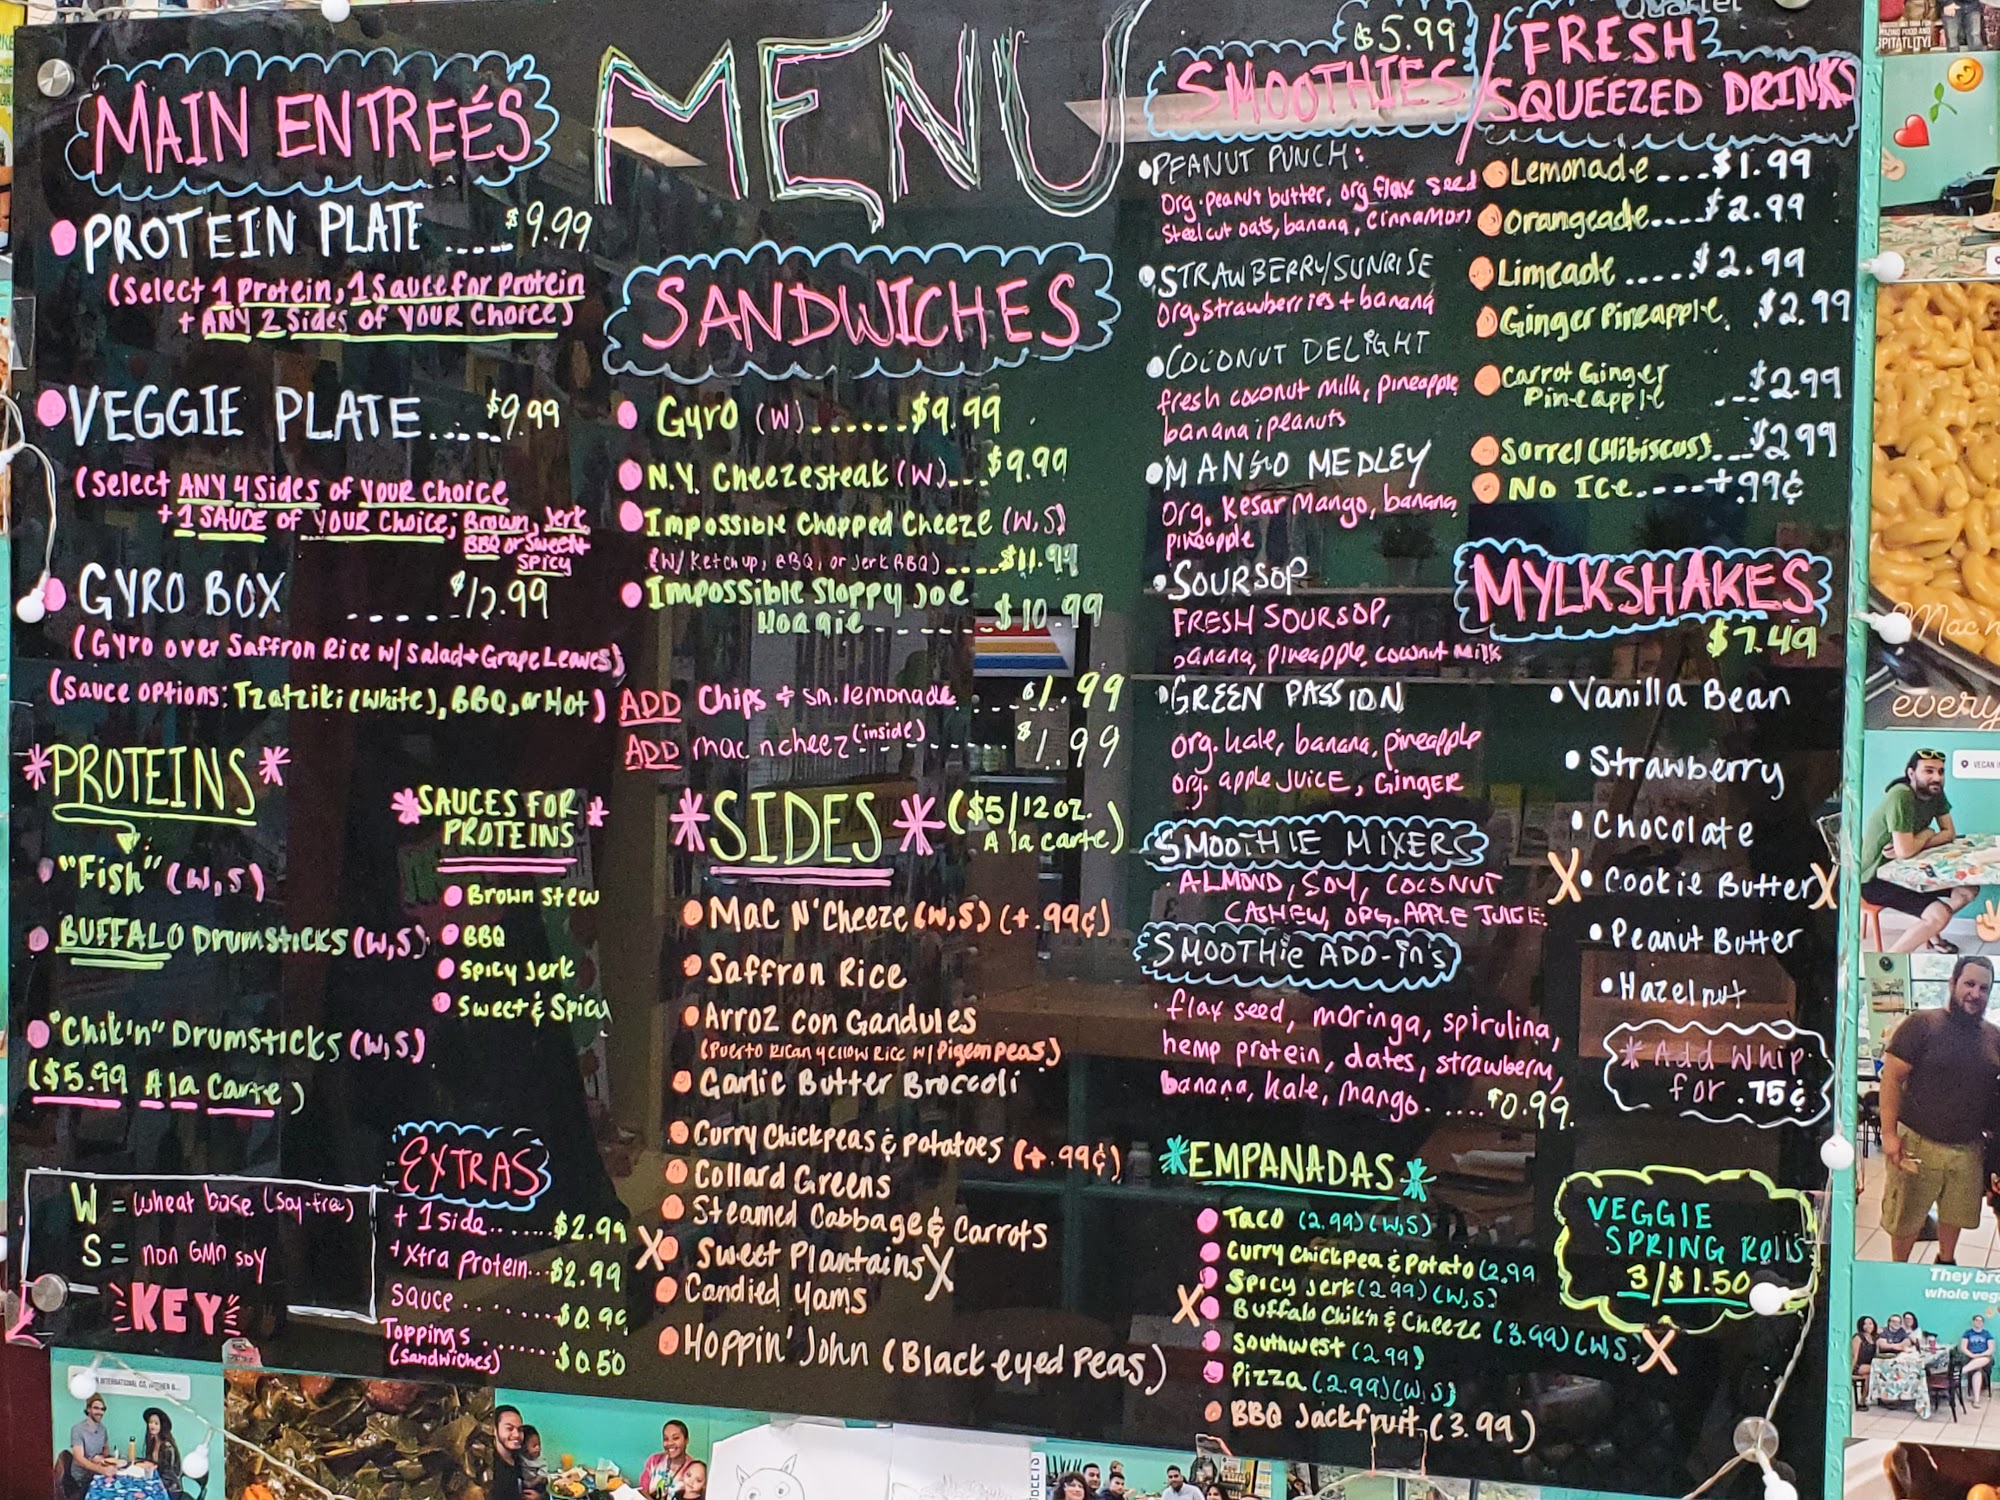 MENU
MAIN ENTREÉS
PROTEIN PLATE ..... $9.99
(Select 1 Protein, 1 Sauce for Protein
+ ANY 2 Sides of YOUR Choice)
VEGGIE PLATE..... $9.99
(Select ANY 4 Sides of YOUR Choice
+ 1 SAUCE of YOUR Choice; Brown, Jerk,
BBQ or Sweet +
Spicy
GYRO BOX ..... $12.99
(Gyro over Saffron Rice w/ Salad + Grape Leaves)
(Sauce options: Tzatziki (White), BBQ, or Hot)
*PROTEINS*
"Fish" (W,S)
BUFFALO DRUMSTICKS (W,S)
"Chik'n" DRUMSTICKS (W,S)
($5.99 A la Carte)
*SAUCES FOR
PROTEINS*
Brown Stew
BBQ
Spicy Jerk
Sweet & Spicy
W = Wheat base (Soy-free)
S = non GMO soy
KEY
EXTRAS
+ 1 side.......$2.99
+ Xtra Protein...$2.99
Sauce ........$0.99
Toppings .......$0.50
(sandwiches)
SANDWICHES
Gyro (W)......$9.99
N.Y. Cheezesteak (W)...$9.99
Impossible Chopped Cheeze (W,S)
(W/ Ketchup, BBQ, or Jerk BBQ)....$11.99
Impossible Sloppy Joe
Hoagie .......$10.99
ADD Chips + sm. lemonade ....$1.99
ADD mac n cheez (inside) ......$1.99
*SIDES* ($5/12oz.
A la carte)
Mac N' Cheeze (W,S) (+.99¢)
Saffron Rice
Arroz con Gandules
(Puerto Rican Yellow Rice w/ Pigeon Peas)
Garlic Butter Broccoli
Curry Chickpeas & Potatoes (+.99¢)
Collard Greens
Steamed Cabbage & Carrots
X Sweet Plantains X
Candied Yams
Hoppin' John (Black eyed Peas)
$5.99
SMOOTHIES/
PEANUT PUNCH:
Org. peanut butter, org flax seed
Steel cut oats, banana, cinnamon
STRAWBERRY/SUNRISE
org. strawberries + banana
COCONUT DELIGHT
fresh coconut milk, pineapple
banana, peanuts
MANGO MEDLEY
Org. Kesar Mango, banana,
pineapple
SOURSOP
FRESH SOURSOP,
banana, pineapple, coconut milk
GREEN PASSION
org. kale, banana, pineapple
org. apple JUICE, GINGER
SMOOTHIE MIXERS
ALMOND, SOY, COCONUT
CASHEW, ORG. APPLE JUICE
SMOOTHIE ADD-in's
flax seed, moringa, spirulina,
hemp protein, dates, strawberry,
banana, kale, mango. .....$0.99.
*EMPANADAS*
Taco (2.99)(W,S)
Curry Chickpea & Potato (2.99
Spicy Jerk (2.99)(W,S)
X Buffalo Chik'n & Cheeze (3.99)(W,S) X
Southwest (2.99)
Pizza (2.99)(W,S)
BBQ Jackfruit (3.99)
FRESH
SQUEEZED DRINKS
Lemonade...$1.99
Orangeade....$2.99
Limeade ....$2.99
Ginger Pineapple. $2.99
Carrot Ginger
Pineapple ...$2.99
Sorrel (Hibiscus)...$2.99
No Ice....+.99¢
MYLKSHAKES
$7.49
Vanilla Bean
Strawberry
Chocolate
X Cookie Butter X
Peanut Butter
Hazelnut
* Add Whip
for .75¢
VEGGIE
SPRING Rolls
3/$1.50
Quartet
AMAZING FOOD AND
Mac n
every
VEGAN
They bro
whole vega